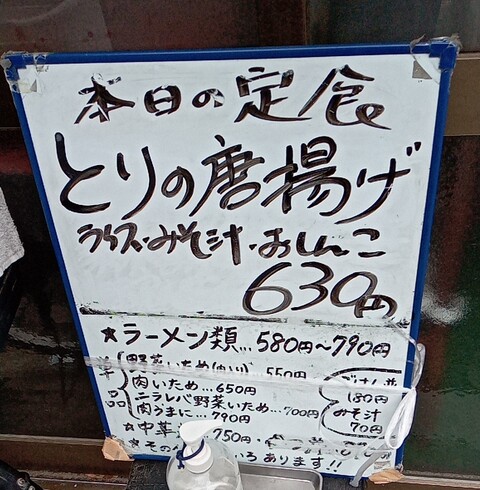 本日の定食
とりの唐揚げ
ライス・みそ汁・おしんこ
630円
★ラーメン類…580円〜790円
単品
野菜いため(肉入り)…550円
肉いため…650円
ニラレバ野菜いため…700円
肉うまに…790円
ごはん並
180円
みそ汁
70円
★中華
750円
いろあります!!